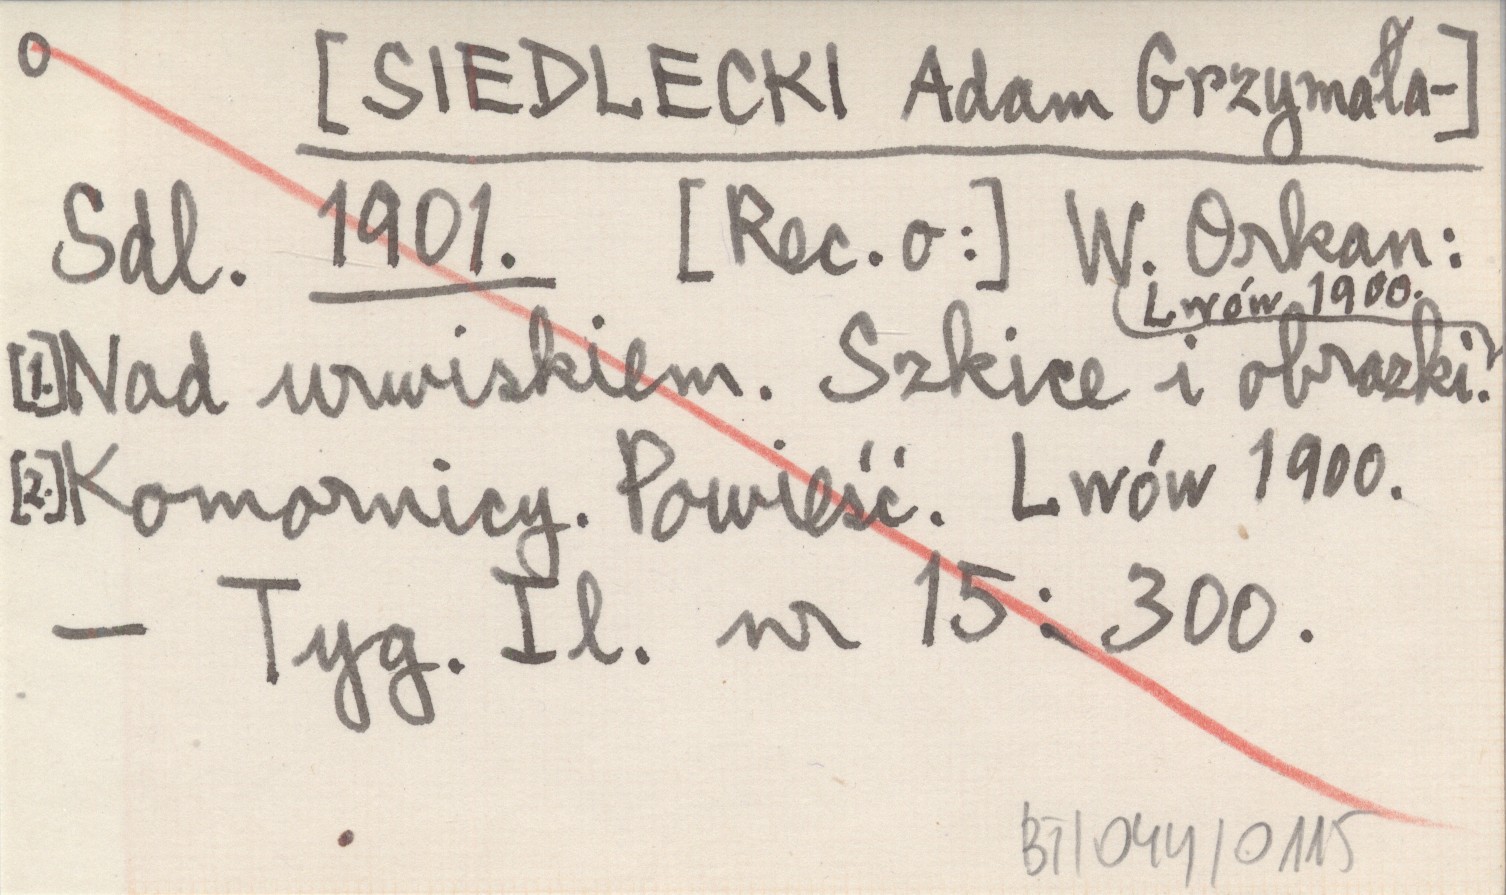 o [SIEDLECKI Adam Grzymała-]
Sdl. 1901. [Rec. o:] W. Orkan:
Lwów 1900.
[1.] Nad urwiskiem. Szkice i obrazki.
[2.] Komornicy. Powieść. Lwów 1900.
— Tyg. Il. nr 15: 300.
BT/044/0115